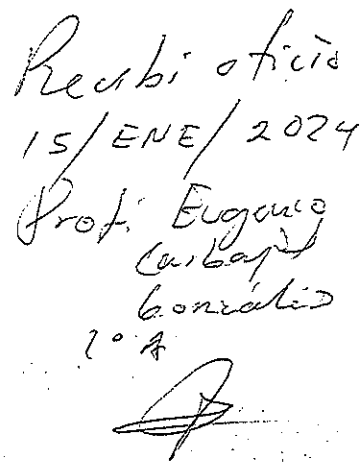 Recibi oficio
15/ENE/2024
Prof. Eugenio
Carbajal
González